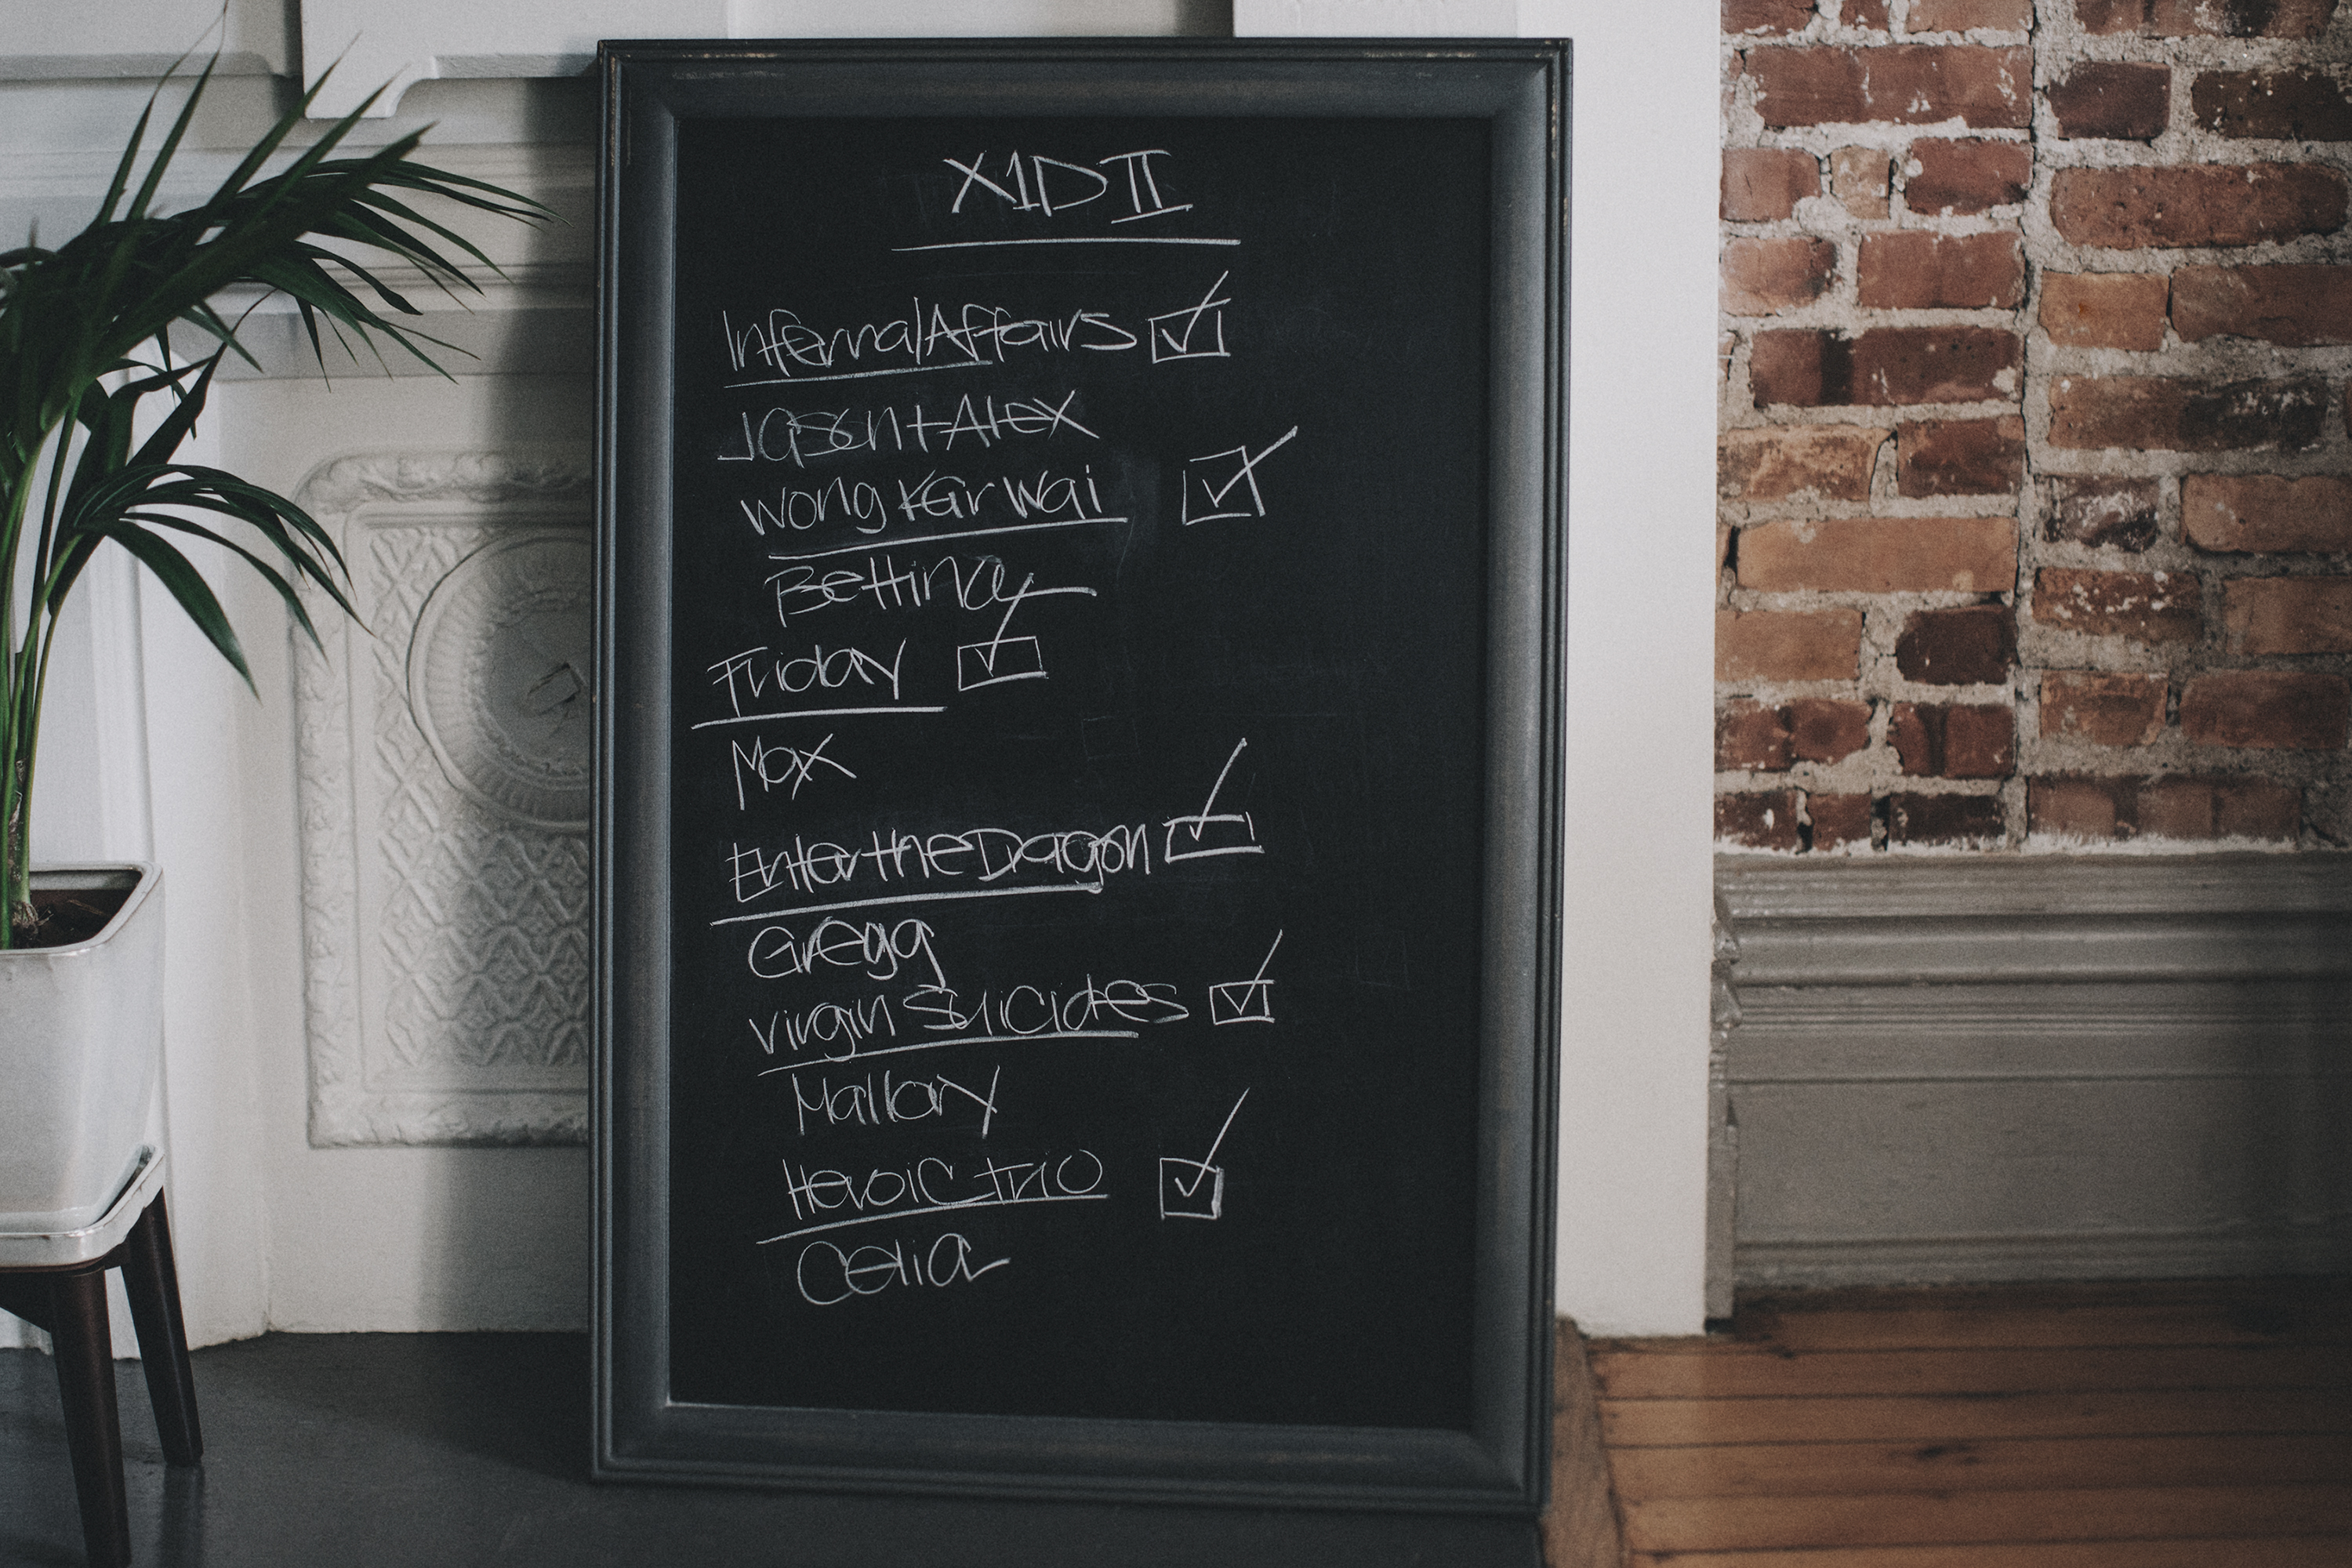 X1D II
Infernal Affairs
Jason + Alex
Wong Kar Wai
Bettina
Friday
Max
Enter the Dragon
Gregg
Virgin Suicides
Mallory
Heroic Trio
Celia